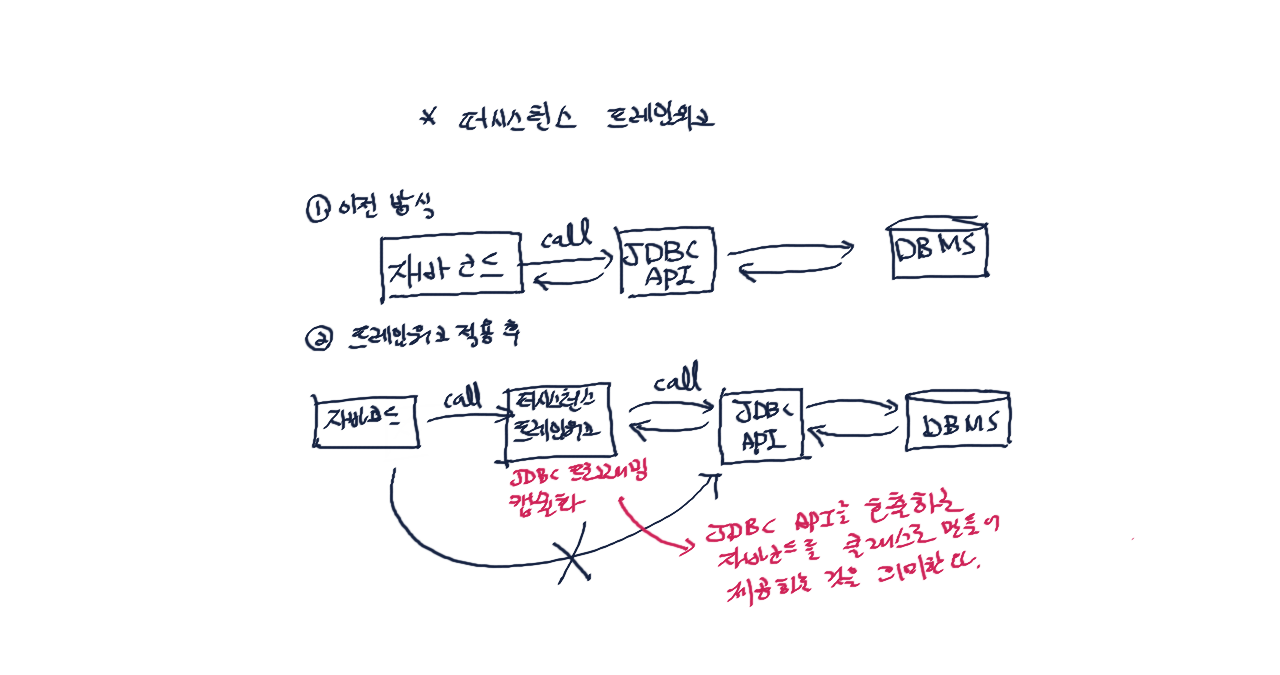 * 퍼시스턴스 프레임워크
① 이전 방식
자바 코드
call
JDBC
API
DBMS
② 프레임워크 적용 후
자바코드
call
퍼시스턴스
프레임워크
call
JDBC
API
DBMS
JDBC 프로그래밍
캡슐화
JDBC API를 호출하는
자바코드를 클래스로 만들어
제공하는 것을 의미한다.